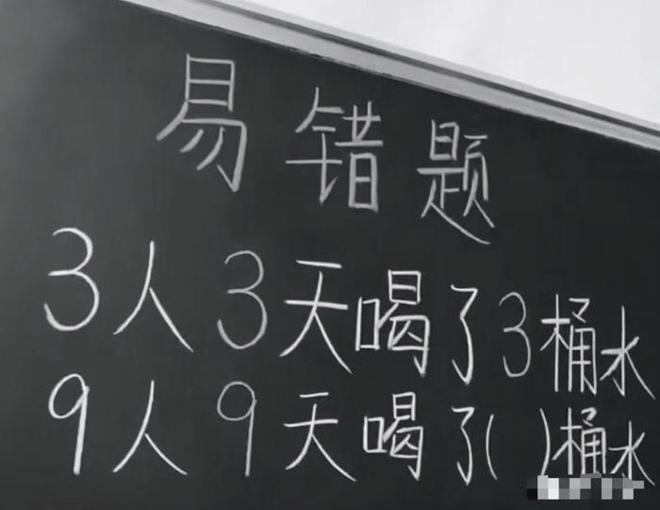 易错题
3人3天喝了3桶水
9人9天喝了( )桶水